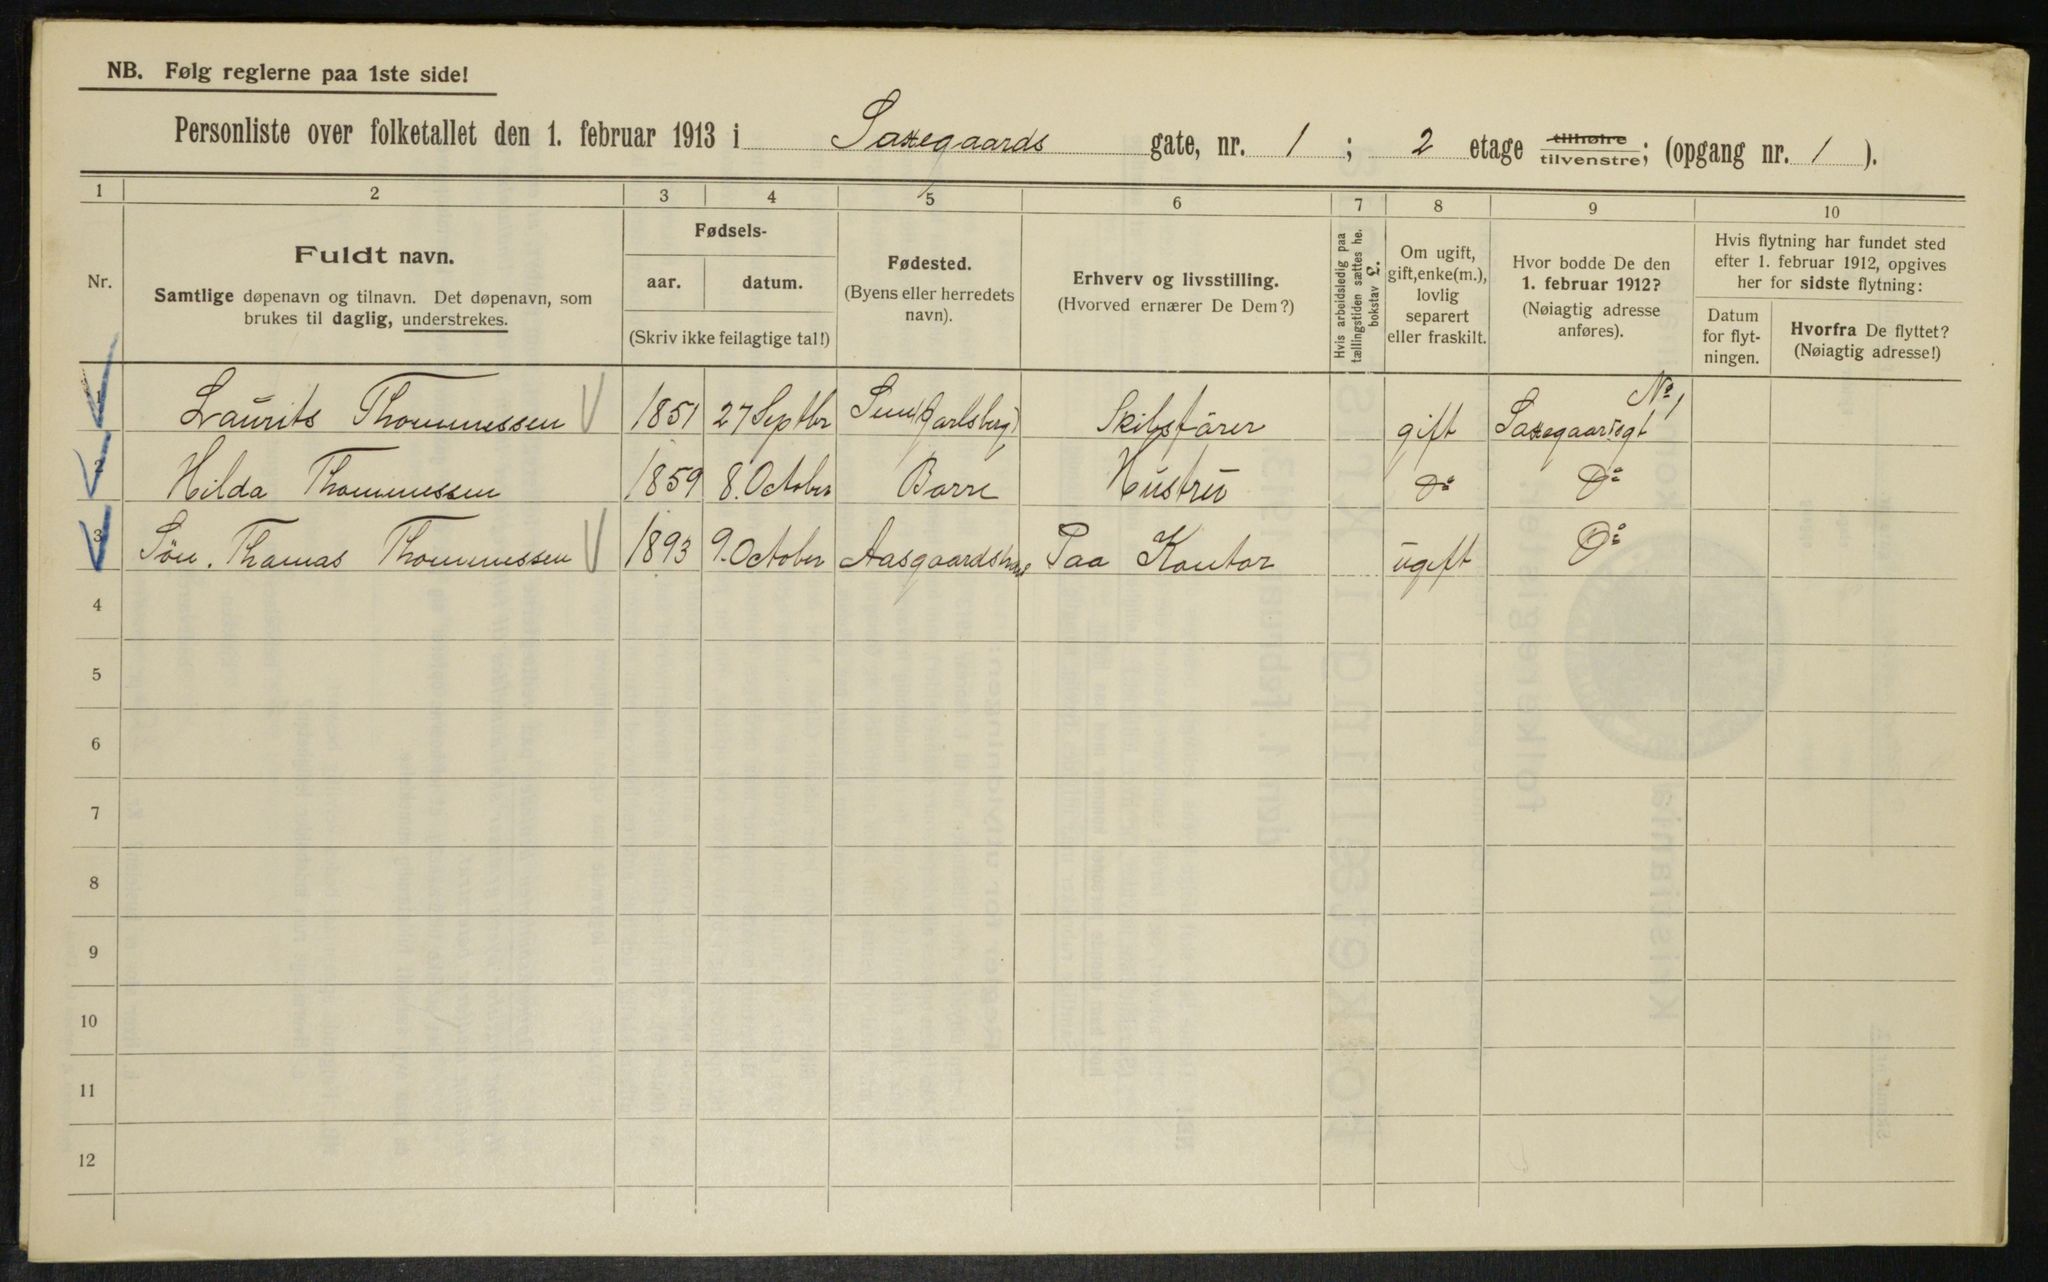 NB. Følg reglerne paa 1ste side!
Personliste over folketallet den 1. februar 1913 i Saxegaards gate, nr. 1; 2 etage tilhøire tilvenstre; (opgang nr. 1).
1 2 3 4 5 6 7 8 9 10
Nr.
Fuldt navn.
Samtlige døpenavn og tilnavn. Det døpenavn, som
brukes til daglig, understrekes.
Fødsels-
aar. datum.
(Skriv ikke feilagtige tal!)
Fødested.
(Byens eller herredets
navn).
Erhverv og livsstilling.
(Hvorved ernærer De Dem?)
Hvis arbeidsledig paa
tællingstiden sættes he.
bokstav L.
Om ugift,
gift, enke(m.),
lovlig
separert
eller fraskilt.
Hvor bodde De den
1. februar 1912?
(Nøiagtig adresse
anføres).
Hvis flytning har fundet sted
efter 1. februar 1912, opgives
her for sidste flytning:
Datum
for flyt-
ningen.
Hvorfra De flyttet?
(Nøiagtig adresse!)
1 Laurits Thommessen 1851 27 Septbr Sem (Jarlsberg) Skibsfører gift Saxegaardsgt No 1
2 Hilda Thommessen 1859 8. October Borre Hustru Do Do
3 Sön. Thomas Thommessen 1893 9. October Aasgaardstrand Paa Kontor ugift Do
4
5
6
7
8
9
10
11
12